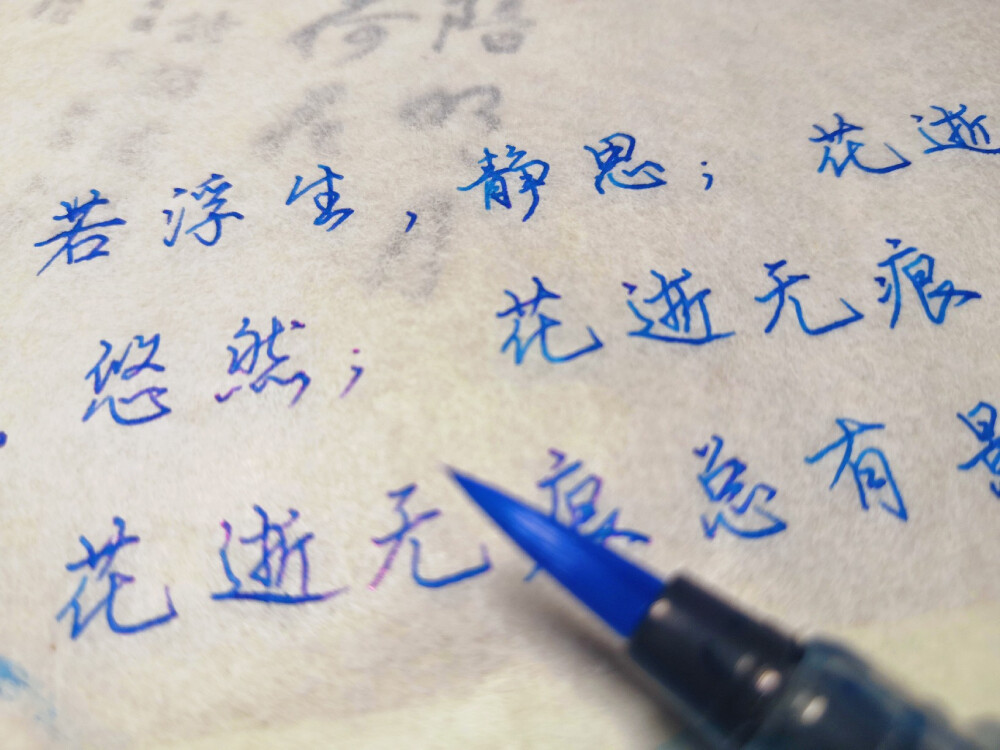 若浮生，静思；花逝
悠然；花逝无痕
花逝无痕总有景